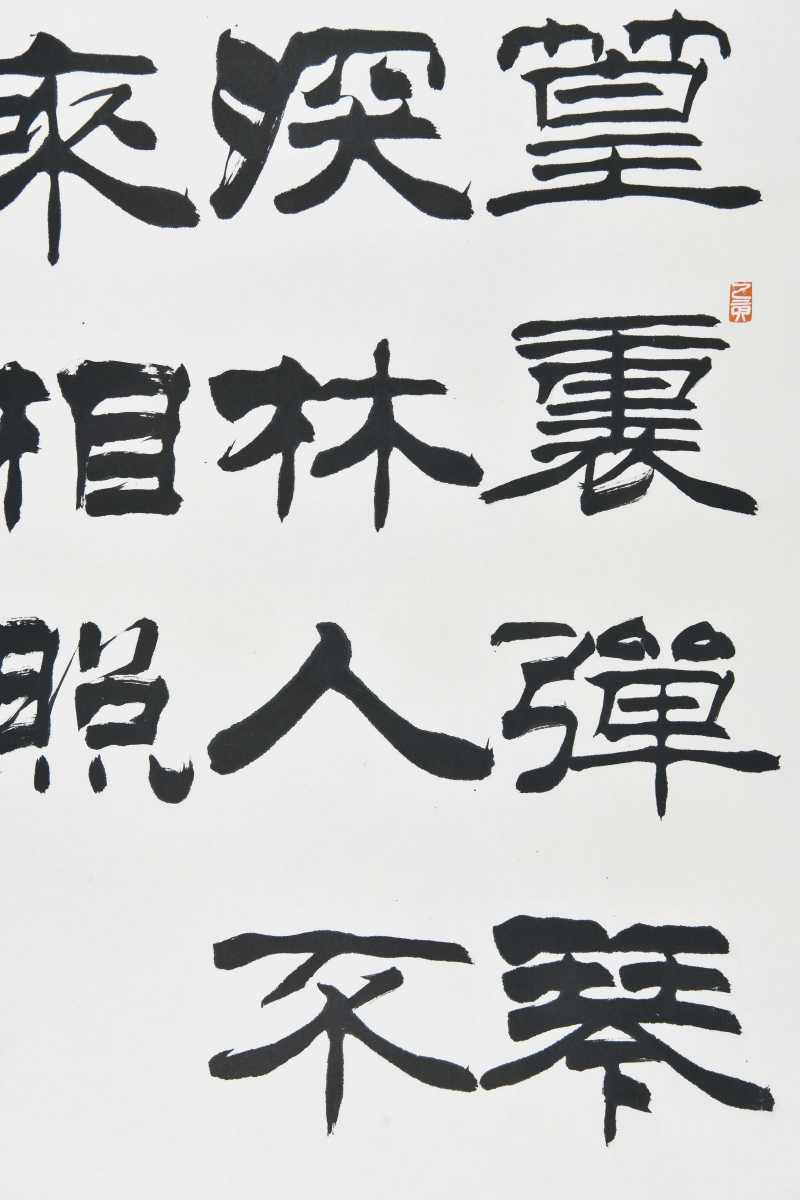 篁裏彈琴
深林人不
來相照